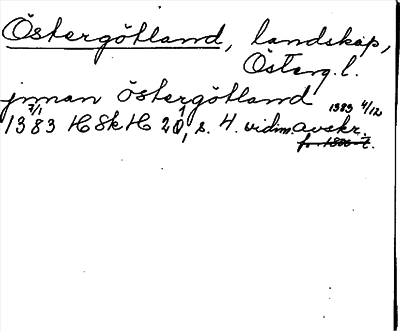 Östergötland, landskap,
Österg. l.
jnnan östergötland
1383 7/1 HSkH 20, s. 4. vidim. avskr. 1383 4/12
f. 1800-t.